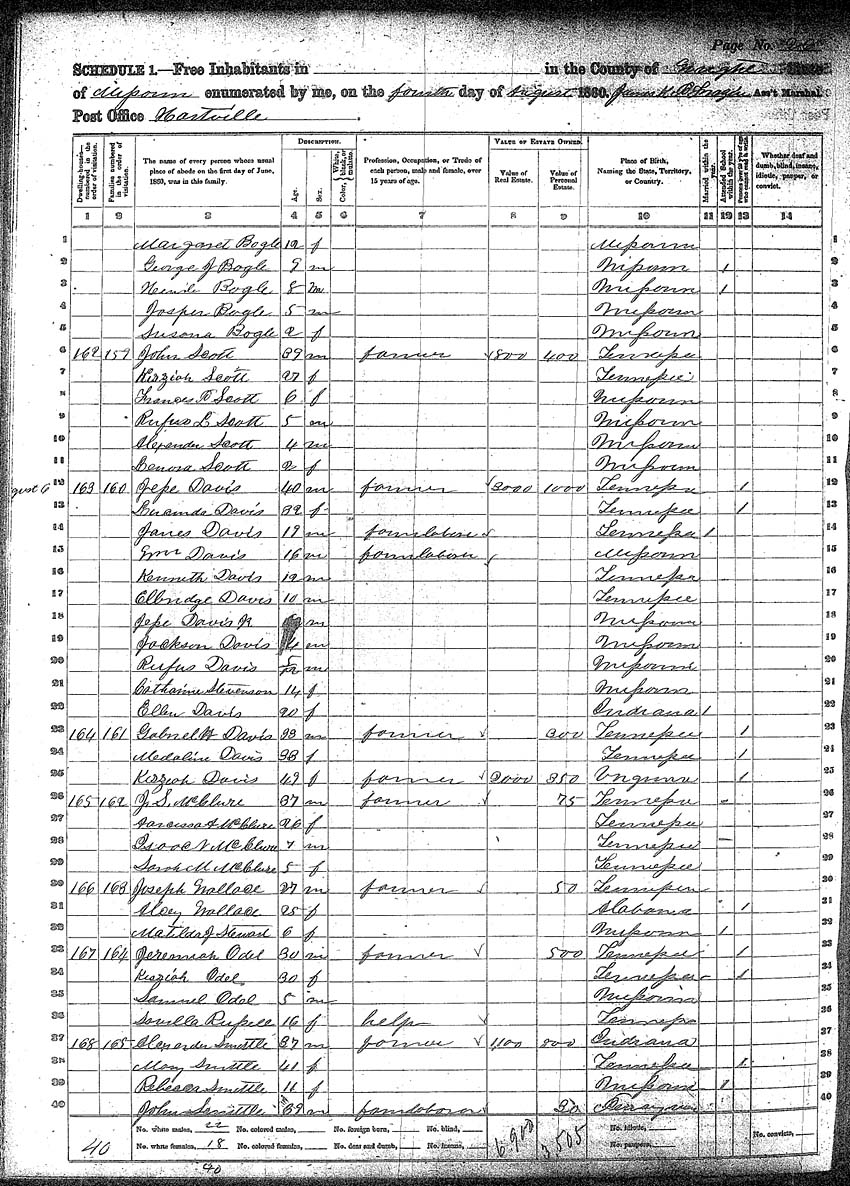 Page No.
SCHEDULE 1.—Free Inhabitants in in the County of State
of Missouri enumerated by me, on the fourth day of August 1860. Ass't Marshal.
Post Office Hartville
Dwelling-house— numbered in the order of visitation.
Families numbered in the order of visitation.
The name of every person whose usual place of abode on the first day of June, 1860, was in this family.
DESCRIPTION.
Age.
Sex.
Color, White, black, or mulatto.
Profession, Occupation, or Trade of each person, male and female, over 15 years of age.
VALUE OF ESTATE OWNED.
Value of Real Estate.
Value of Personal Estate.
Place of Birth, Naming the State, Territory, or Country.
Married within the year.
Attended School within the year.
Persons over 20 y'rs of age who cannot read & write.
Whether deaf and dumb, blind, insane, idiotic, pauper, or convict.
1 2 3 4 5 6 7 8 9 10 11 12 13 14
1 Margaret Bogle 12 f Missouri 1
2 George J Bogle 9 m Missouri 1 2
3 Bogle 8 m Missouri 1 3
4 Jasper Bogle 5 m Missouri 4
5 Susona Bogle 2 f Missouri 5
6 162 159 John Scott 39 m farmer 800 400 Tennessee 6
7 Kizziah Scott 27 f Tennessee 7
8 Frances Scott 6 f Missouri 8
9 Rufus L Scott 5 m Missouri 9
10 Alexander Scott 4 m Missouri 10
11 Lenora Scott 2 f Missouri 11
gust 6 12 163 160 Jesse Davis 40 m farmer 3000 1000 Tennessee 1 12
13 Davis 39 f Tennessee 1 13
14 James Davis 19 m farm laborer Tennessee 1 14
15 Wm Davis 16 m farm laborer Missouri 15
16 Kenneth Davis 12 m Tennessee 16
17 Elbridge Davis 10 m Tennessee 17
18 Jesse Davis Jr m Missouri 18
19 Jackson Davis 4 m Missouri 19
20 Rufus Davis 5/12 m Missouri 20
21 Catharine Stevenson 14 f Missouri 21
22 Ellen Davis 20 f Indiana 1 22
23 164 161 Gabriel H Davis 33 m farmer 300 Tennessee 1 23
24 Medaline Davis 38 f Tennessee 1 24
25 Kizziah Davis 49 f farmer 2000 350 Virginia 1 25
26 165 162 J. S. McClure 37 m farmer 75 Tennessee 26
27 Narcissa A McClure 26 f Tennessee 27
28 Isaac N McClure 7 m Tennessee 28
29 Sarah M McClure 5 f Tennessee 29
30 166 163 Joseph Wallace 27 m farmer 50 Tennessee 30
31 Wallace 25 f Alabama 1 31
32 Matilda J Stewart 6 f Missouri 1 32
33 167 164 Jeremiah Odel 30 m farmer 500 Tennessee 1 33
34 Kizziah Odel 30 f Tennessee 1 34
35 Samuel Odel 5 m Missouri 35
36 Russell 16 f help Tennessee 36
37 168 165 Alexander Smittle 37 m farmer 1100 800 Indiana 37
38 Mary Smittle 41 f Tennessee 1 38
39 Rebecca Smittle 11 f Missouri 1 39
40 John Smittle 39 m farm laborer 30 40
No. white males, 22 No. colored males, No. foreign born, No. blind, No. idiotic, No. convicts,
40 No. white females, 18 No. colored females, No. deaf and dumb, No. insane, 6,900 3,505 No. paupers,
40